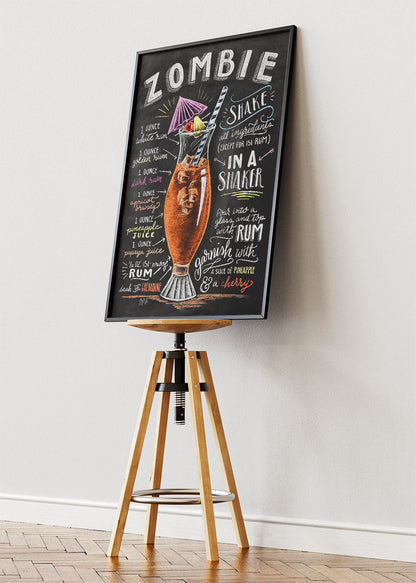 ZOMBIE
1 OUNCE
white rum
1 OUNCE
golden rum
1 OUNCE
dark rum
1 OUNCE
apricot
brandy
1 OUNCE
pineapple
JUICE
1 OUNCE
papaya juice
½ OZ. 151-proof
RUM
dash of GRENADINE
SHAKE
all ingredients
(EXCEPT FOR 151 RUM)
IN A
SHAKER
Pour into a
glass and top
with RUM
garnish with
A SLICE OF PINEAPPLE
& a cherry